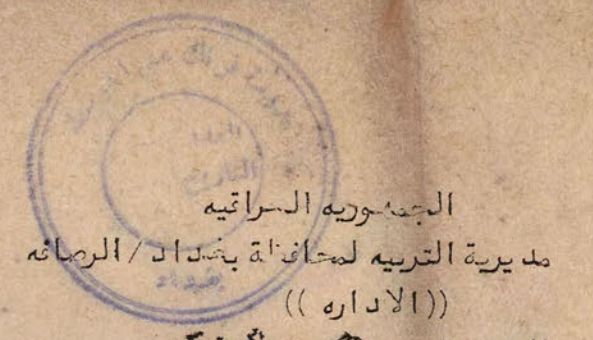 العدد
التاريخ
بغداد
الجمهوريه العراقيه
مديرية التربيه لمحافظة بغداد / الرصافه
((الاداره ))